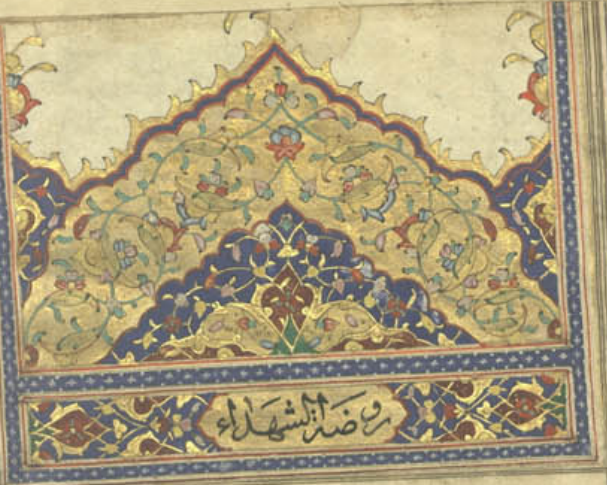 روضة الشهداء